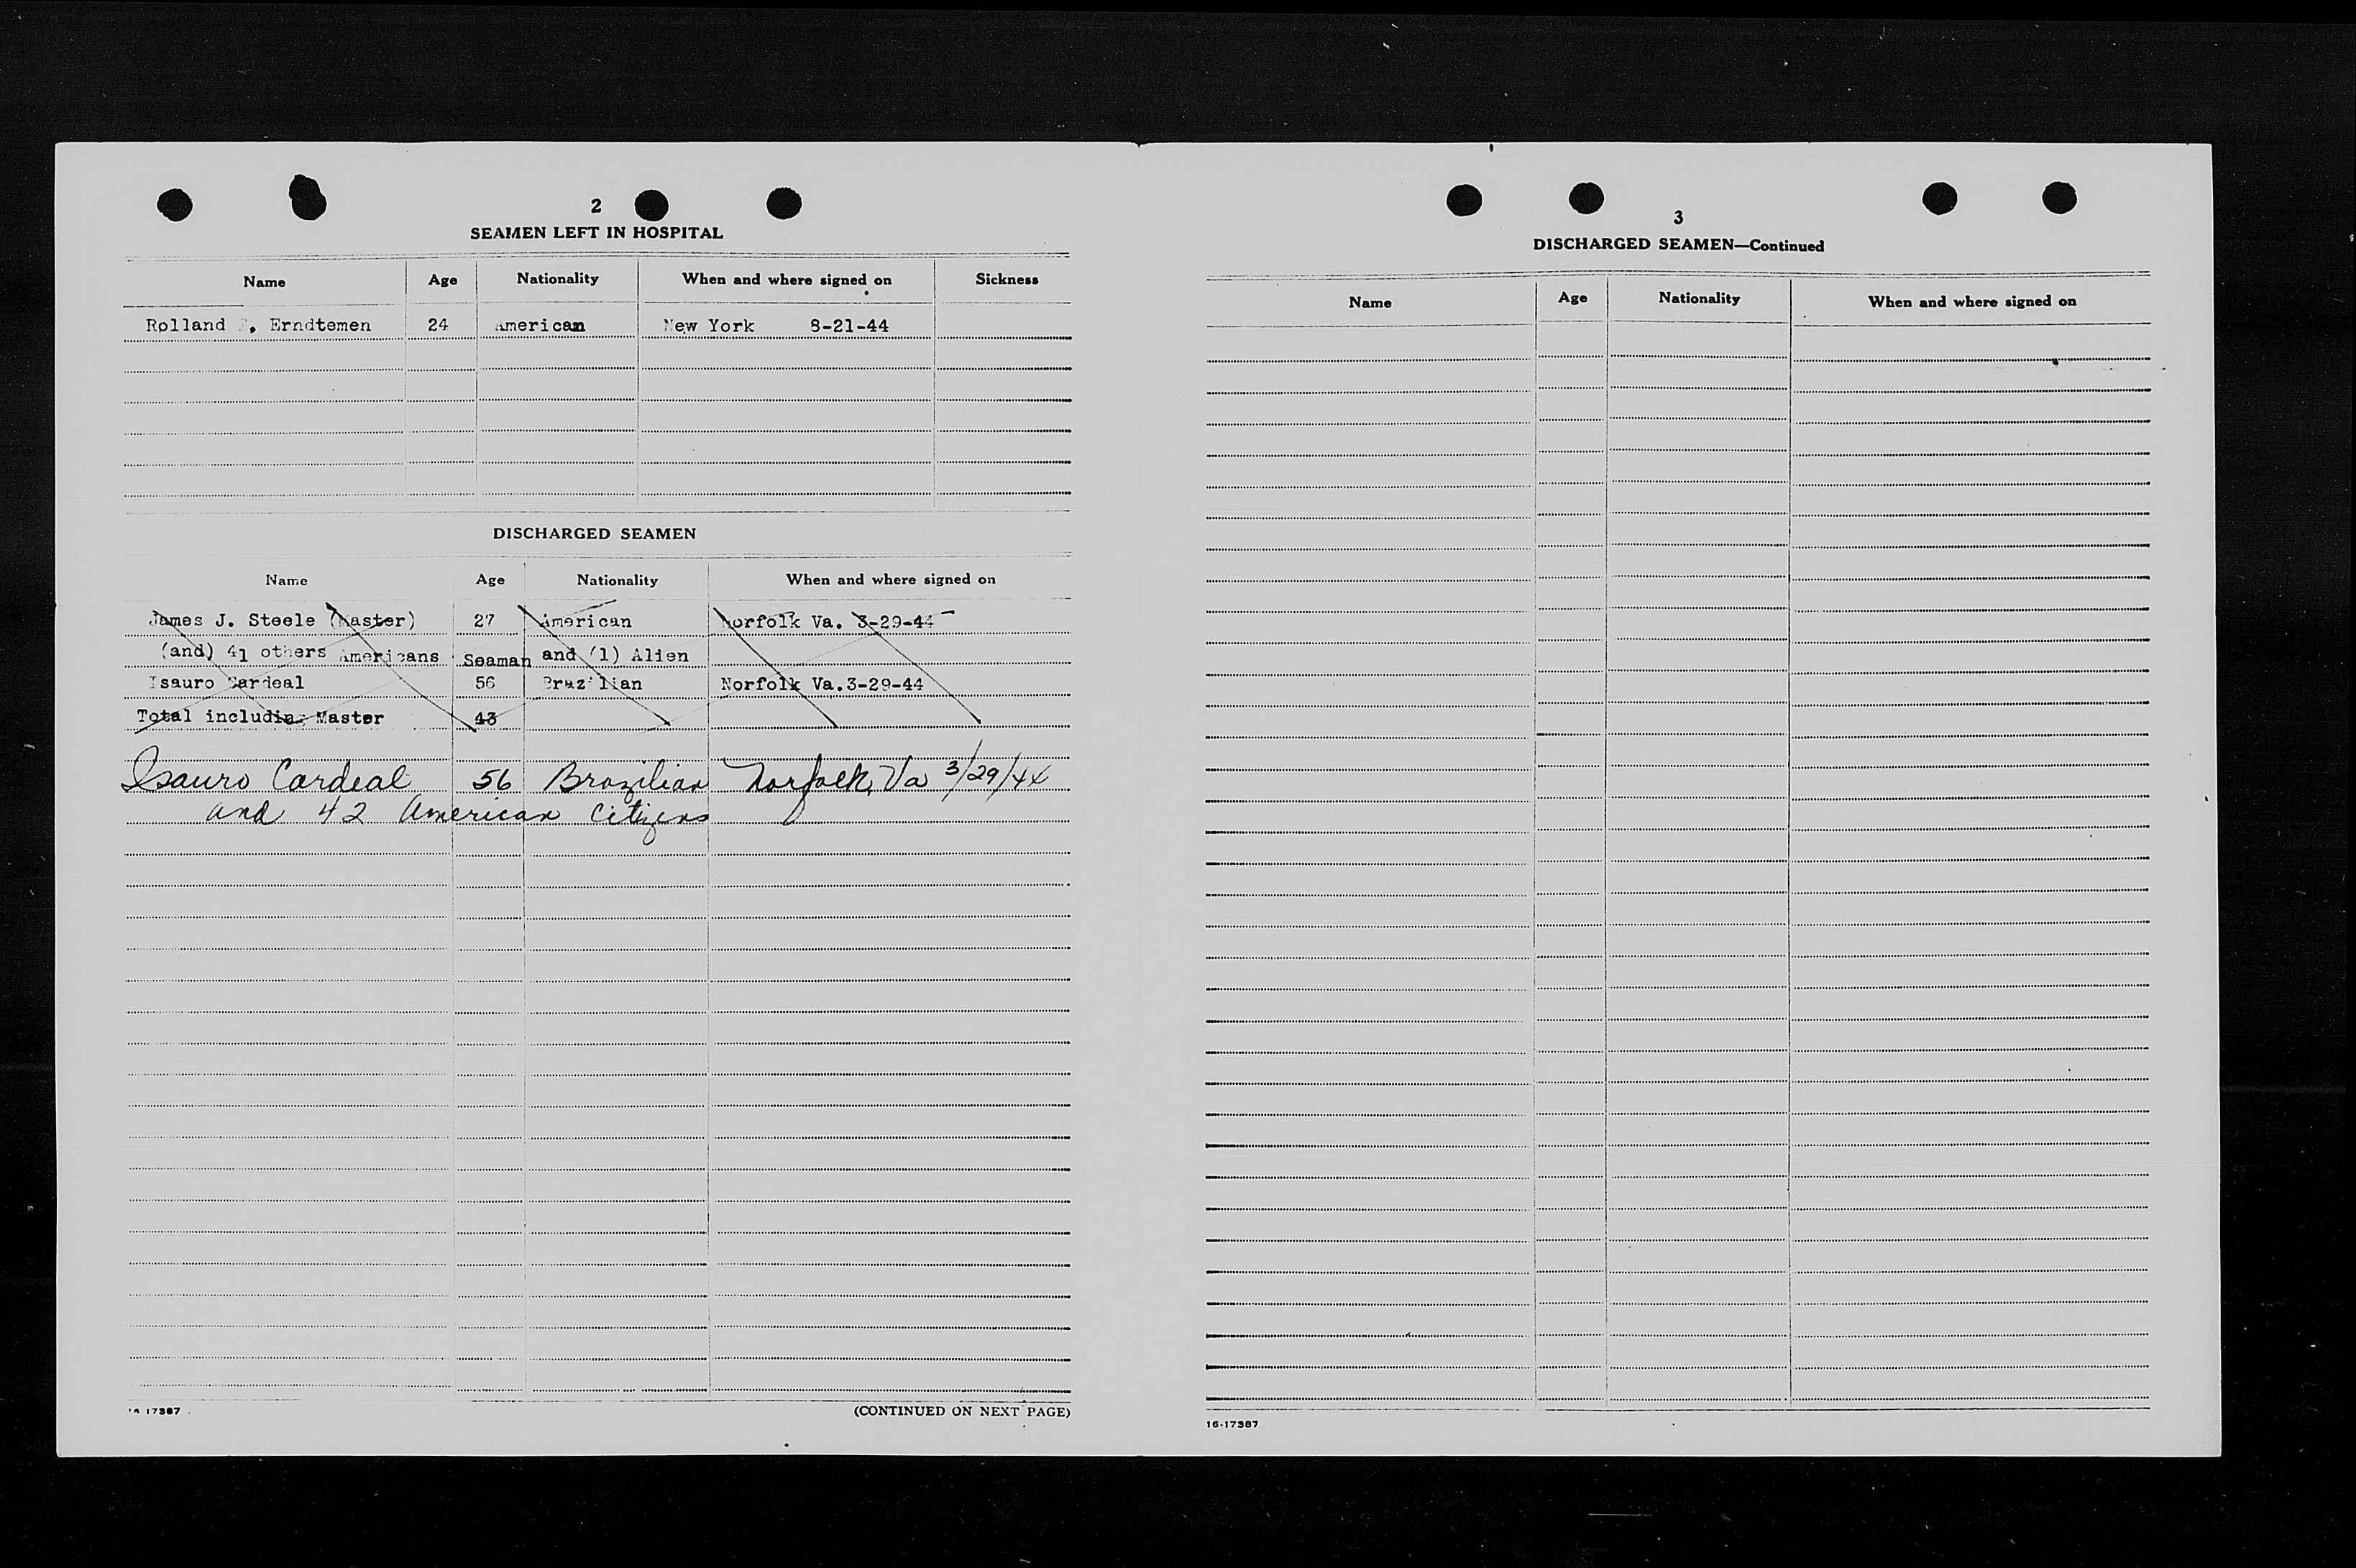 2
SEAMEN LEFT IN HOSPITAL
Name Age Nationality When and where signed on Sickness
Rolland Erndtemen 24 American New York 8-21-44
DISCHARGED SEAMEN
Name Age Nationality When and where signed on
James J. Steele (Master) 27 American Norfolk Va. 3-29-44
(and) 41 others Americans Seaman and (1) Alien
Isauro Cardeal 56 Brazilian Norfolk Va.3-29-44
Total including Master 43
Isauro Cardeal 56 Brazilian Norfolk, Va 3/29/44
and 42 American Citizens
16-17387
(CONTINUED ON NEXT PAGE)
3
DISCHARGED SEAMEN—Continued
Name Age Nationality When and where signed on
16-17387